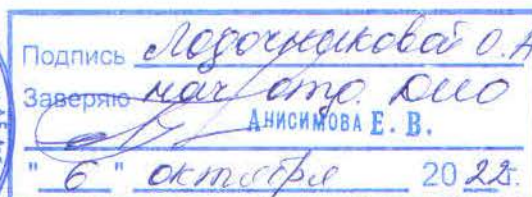 Подпись Лодочниковой О.А
Заверяю нач отд. ДИО
АНИСИМОВА Е. В.
" 6 " октября 20 22г.